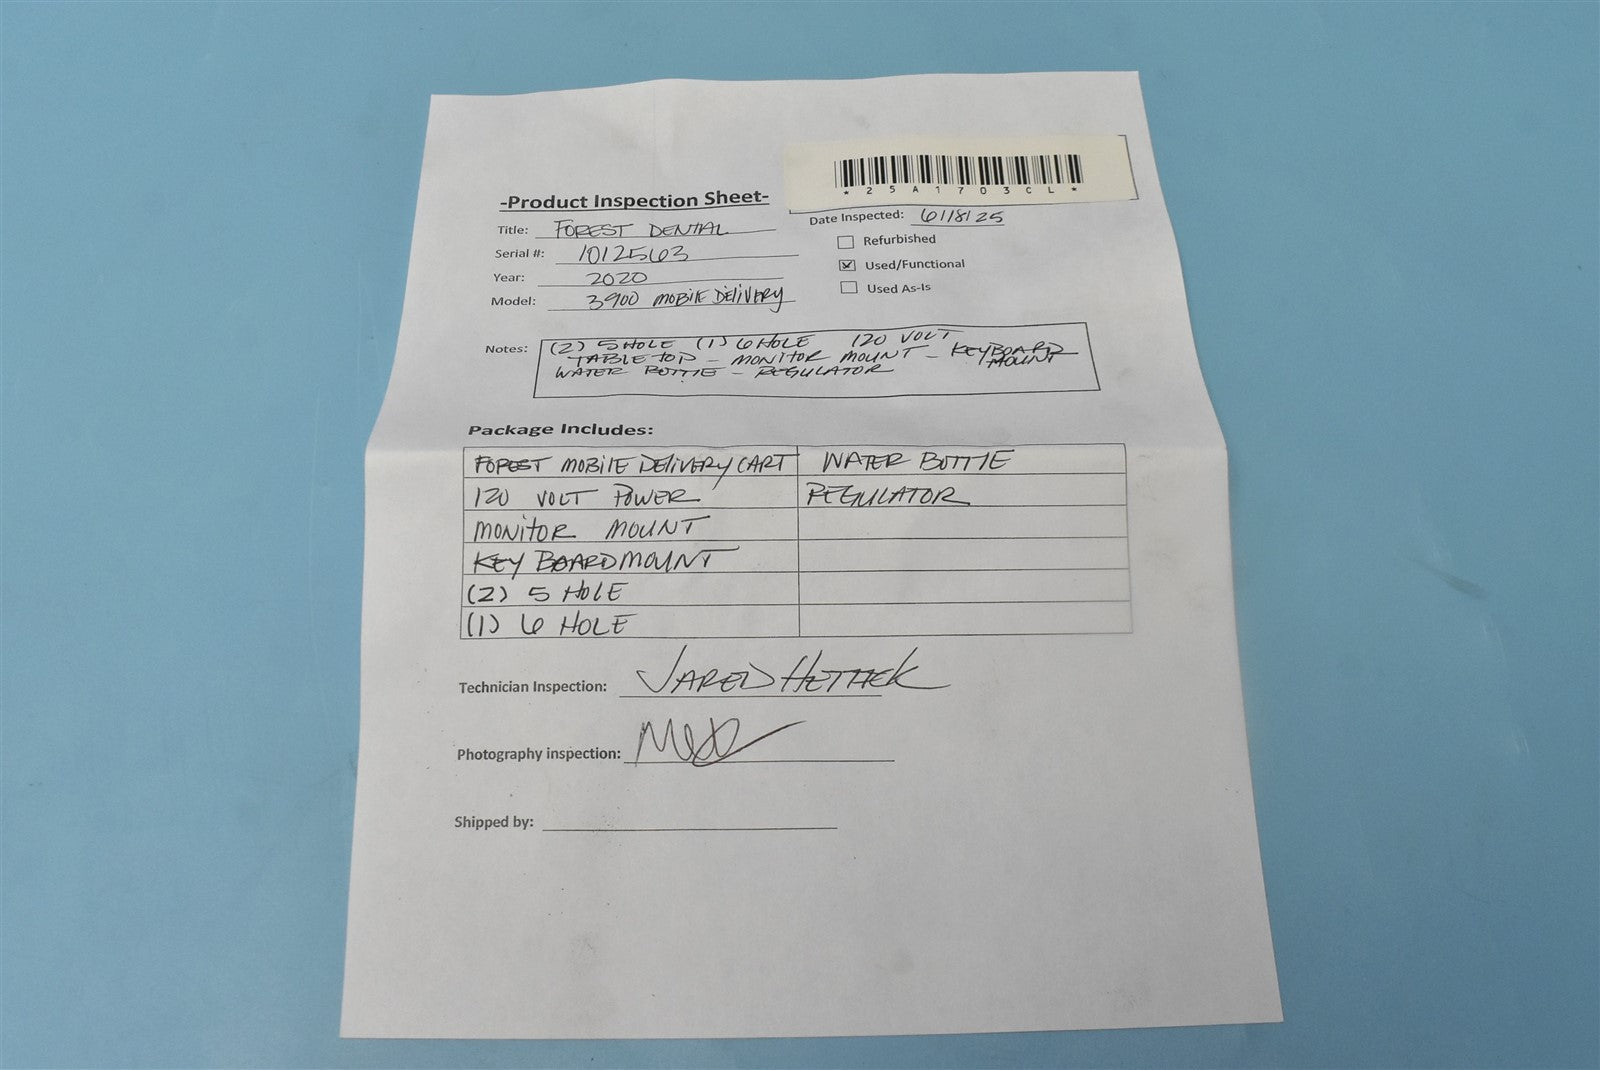 *25A1703CL*
-Product Inspection Sheet-
Date Inspected: 6/18/25
Title: FOREST DENTAL
Refurbished
Serial #: 10125663
Used/Functional
Year: 2020
Used As-Is
Model: 3900 MOBILE DELIVERY
Notes: (2) 5 HOLE (1) 6 HOLE 120 VOLT
TABLE TOP - MONITOR MOUNT - KEYBOARD MOUNT
WATER BOTTLE - REGULATOR
Package Includes:
FOREST MOBILE DELIVERY CART WATER BOTTLE
120 VOLT POWER REGULATOR
MONITOR MOUNT
KEY BOARD MOUNT
(2) 5 HOLE
(1) 6 HOLE
Technician Inspection: JARED
Photography inspection:
Shipped by: